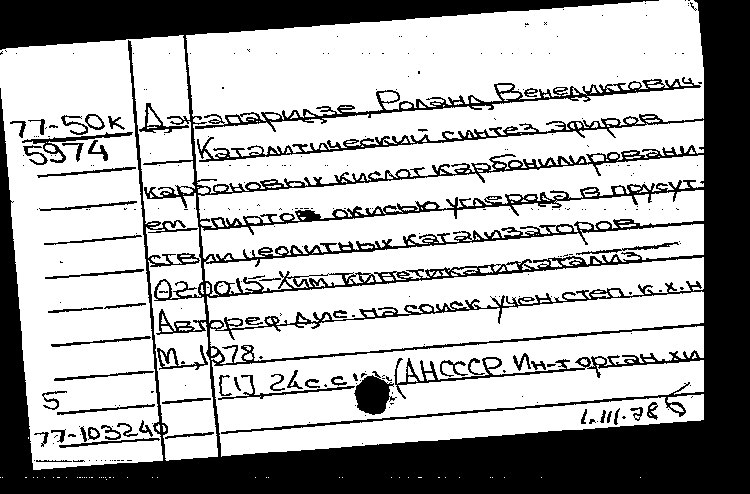 77-50к
5974
Джапаридзе, Роланд Венедиктович.
Каталитический синтез эфиров
карбоновых кислот карбонилировани-
ем спиртов окисью углерода в присут-
ствии цеолитных катализаторов.
02.00.15. Хим. кинетика и катализ.
Автореф. дис. на соиск. учен. степ. к.х.н
М., 1978.
[1], 24 с. с (АНСССР. Ин-т орган. хи
5
77-103240
1.III.78 б